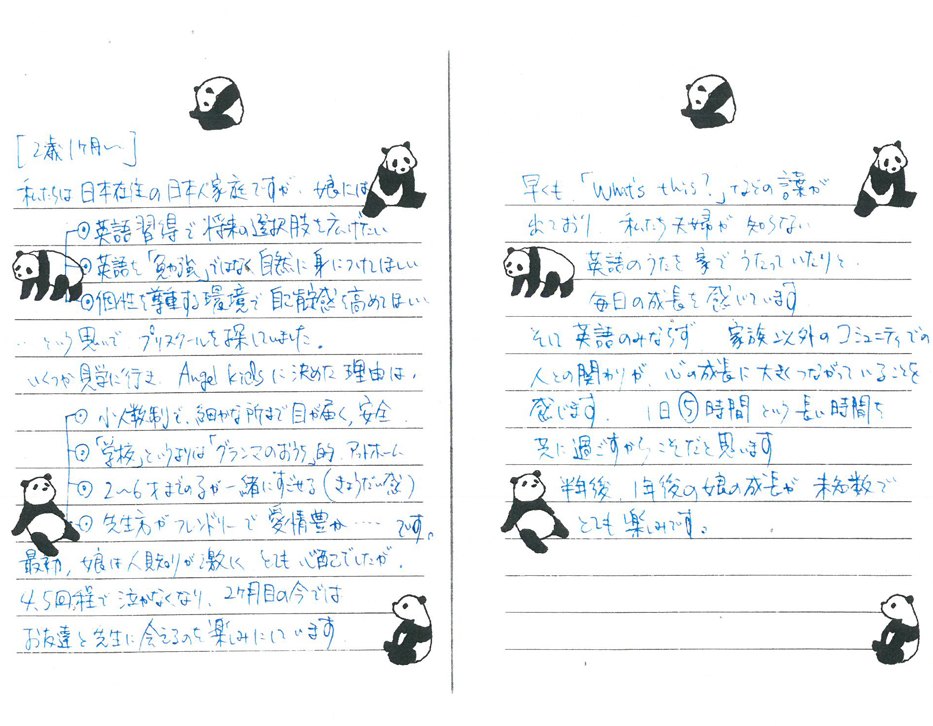 [2歳1ヶ月〜]
私たちは日本在住の日本人家庭ですが、娘には
⊙英語習得で将来の選択肢を広げたい
⊙英語を「勉強」ではなく自然に身につけてほしい
⊙個性を尊重する環境で自己肯定感を高めてほしい
…という思いで プリスクールを探していました。
いくつか見学に行き、Angel kidsに決めた理由は、
⊙ 小人数制で、細かな所まで目が届く、安全
⊙「学校」というよりは「グランマのおうち」的、アットホーム
⊙ 2〜6才までの子が一緒にすごせる(きょうだい感)
⊙ 先生方がフレンドリーで 愛情豊か…… です。
最初、娘は人見知りが激しく とても心配でしたが、
4.5回程で泣かなくなり、2ヶ月目の今では
お友達と先生に会えるのを楽しみにしています
早くも「What's this?」などの言葉が
出ており 私たち夫婦が 知らない
英語のうたを家でうたっていたりと、
毎日の成長を感じています
そして英語のみならず、家族以外のコミュニティでの
人との関わりが、心の成長に大きくつながっていることを
感じます。 1日⑤時間という長い時間を
共に過ごすからこそだと思います
半年後、1年後の娘の成長が 未知数で
とても楽しみです。